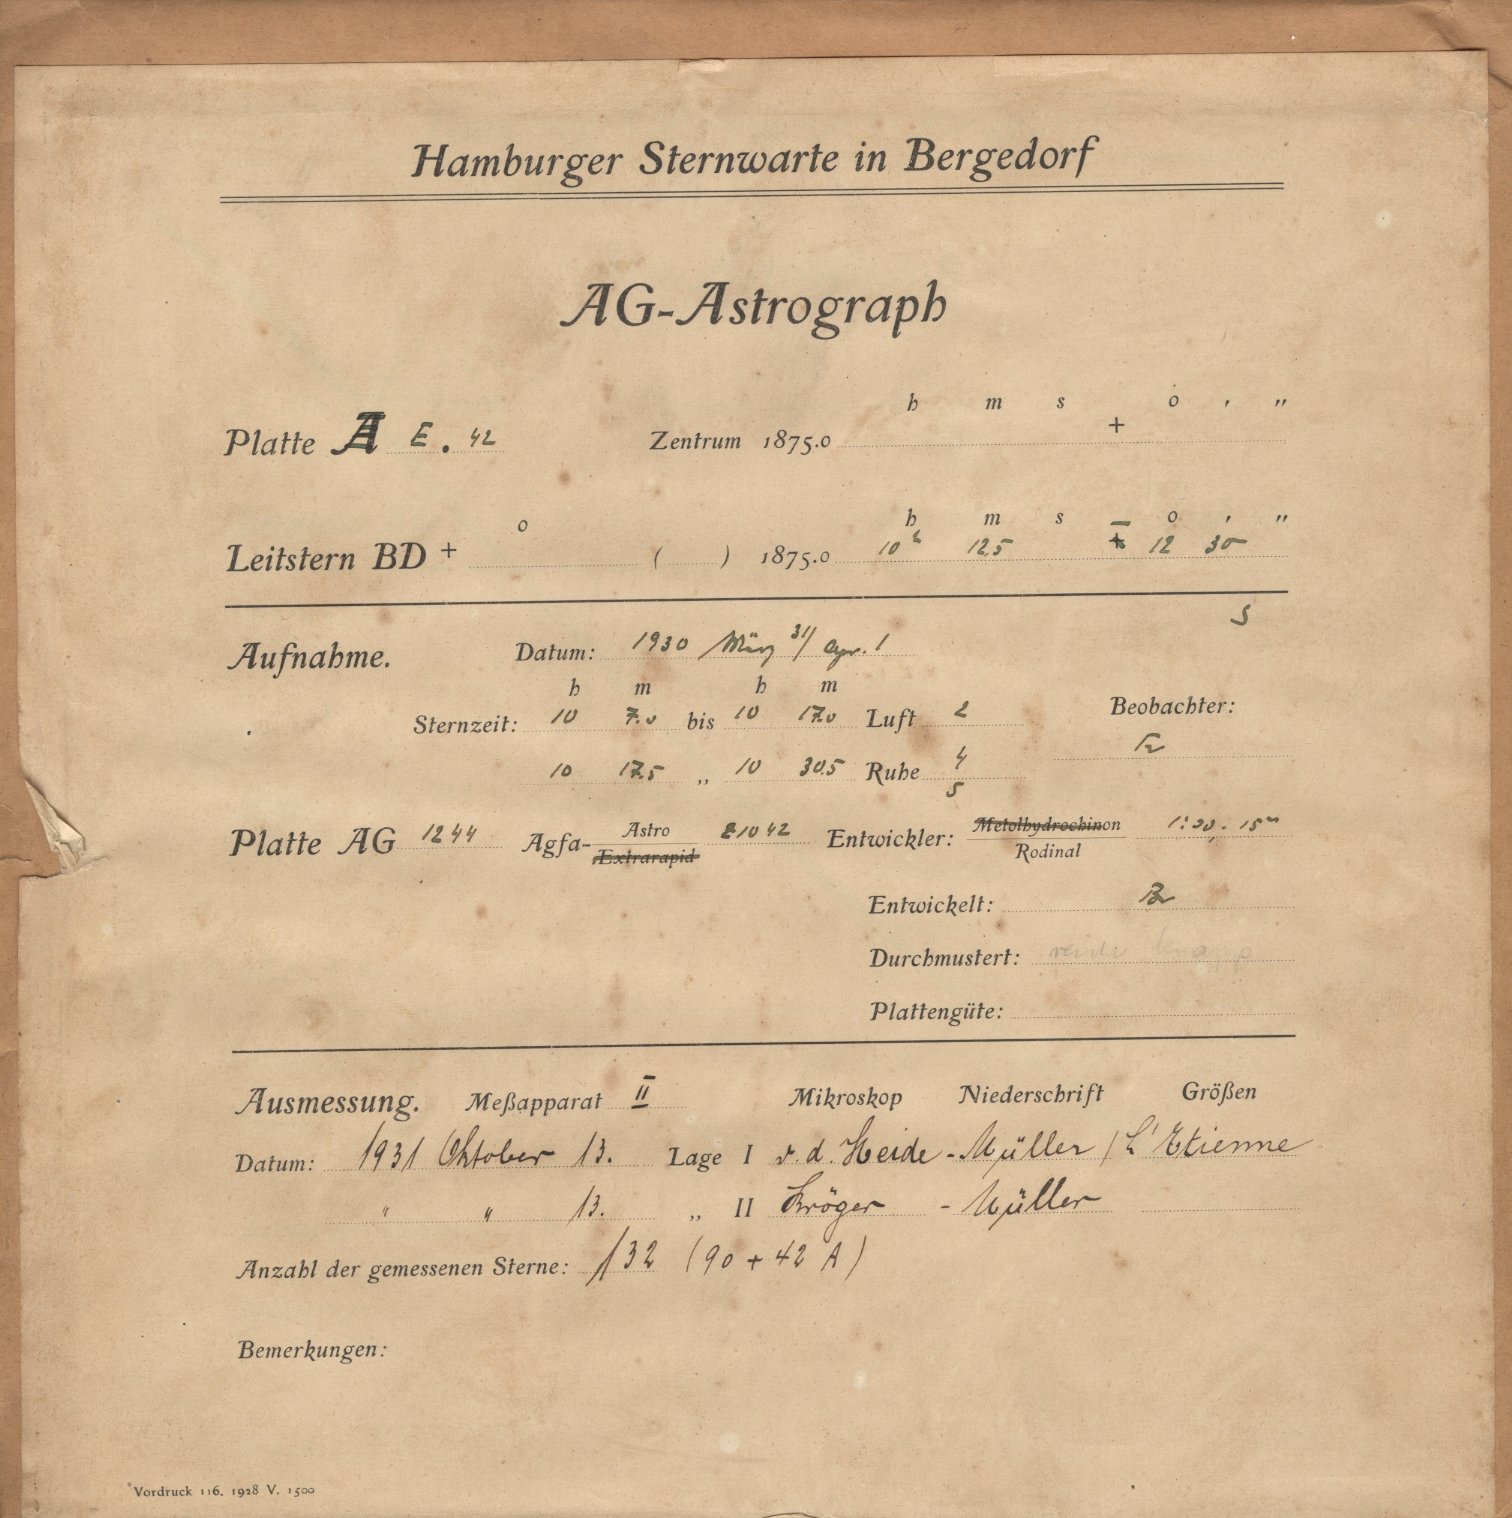 Hamburger Sternwarte in Bergedorf
AG-Astrograph
h m s o ' "
Platte A E. 42 Zentrum 1875.0 +
o h m s − o ' "
Leitstern BD + ( ) 1875.0 10h 12.5 + 12 30
S
Aufnahme. Datum: 1930 März 31/ Apr. 1
h m h m
Sternzeit: 10 7.0 bis 10 17.0 Luft 2 Beobachter:
10 17.5 „ 10 30.5 Ruhe 4
5
Platte AG 1244 Agfa- Astro Extrarapid E1042 Entwickler: Metolhydrochinon Rodinal 1:20, 15m
Entwickelt:
Durchmustert:
Plattengüte:
Ausmessung. Meßapparat II Mikroskop Niederschrift Größen
Datum: 1931 Oktober 13. Lage I v. d. Heide - Müller / L'Etienne
" " 13. „ II Kröger - Müller
Anzahl der gemessenen Sterne: 132 (90 + 42 A)
Bemerkungen:
Vordruck 116. 1928 V. 1500